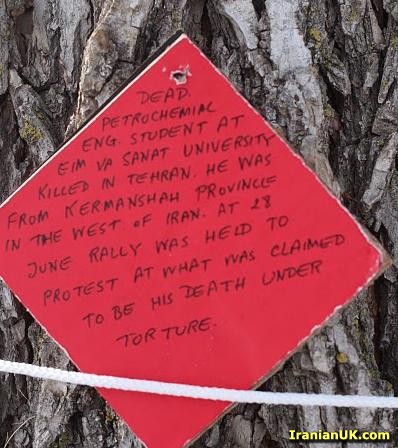 DEAD.
PETROCHEMIAL
ENG. STUDENT AT
EIM VA SANAT UNIVERSITY
KILLED IN TEHRAN. HE WAS
FROM KERMANSHAH PROVINCE
IN THE WEST OF IRAN. AT 28
JUNE RALLY WAS HELD TO
PROTEST AT WHAT WAS CLAIMED
TO BE HIS DEATH UNDER
TORTURE.
IranianUK.com